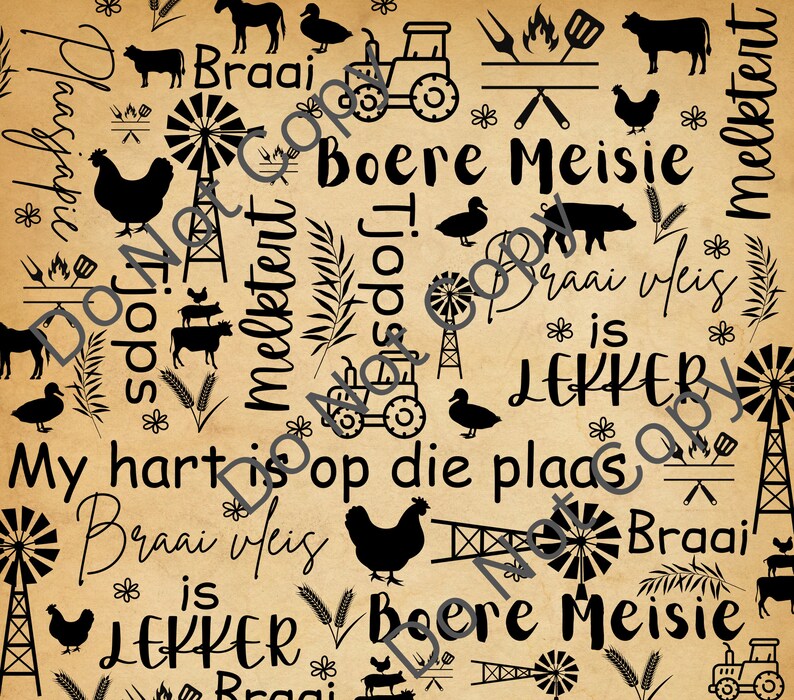 Plaasjapie
Braai
Melktert
Boere Meisie
Tjops
Melktert
Tjops
Braai vleis
is
LEKKER
My hart is op die plaas
Braai vleis
is
LEKKER
Braai
Boere Meisie
Braai
Do Not Copy
Do Not Copy
Do Not Copy
Do Not Copy
Do Not Copy
Do Not Copy